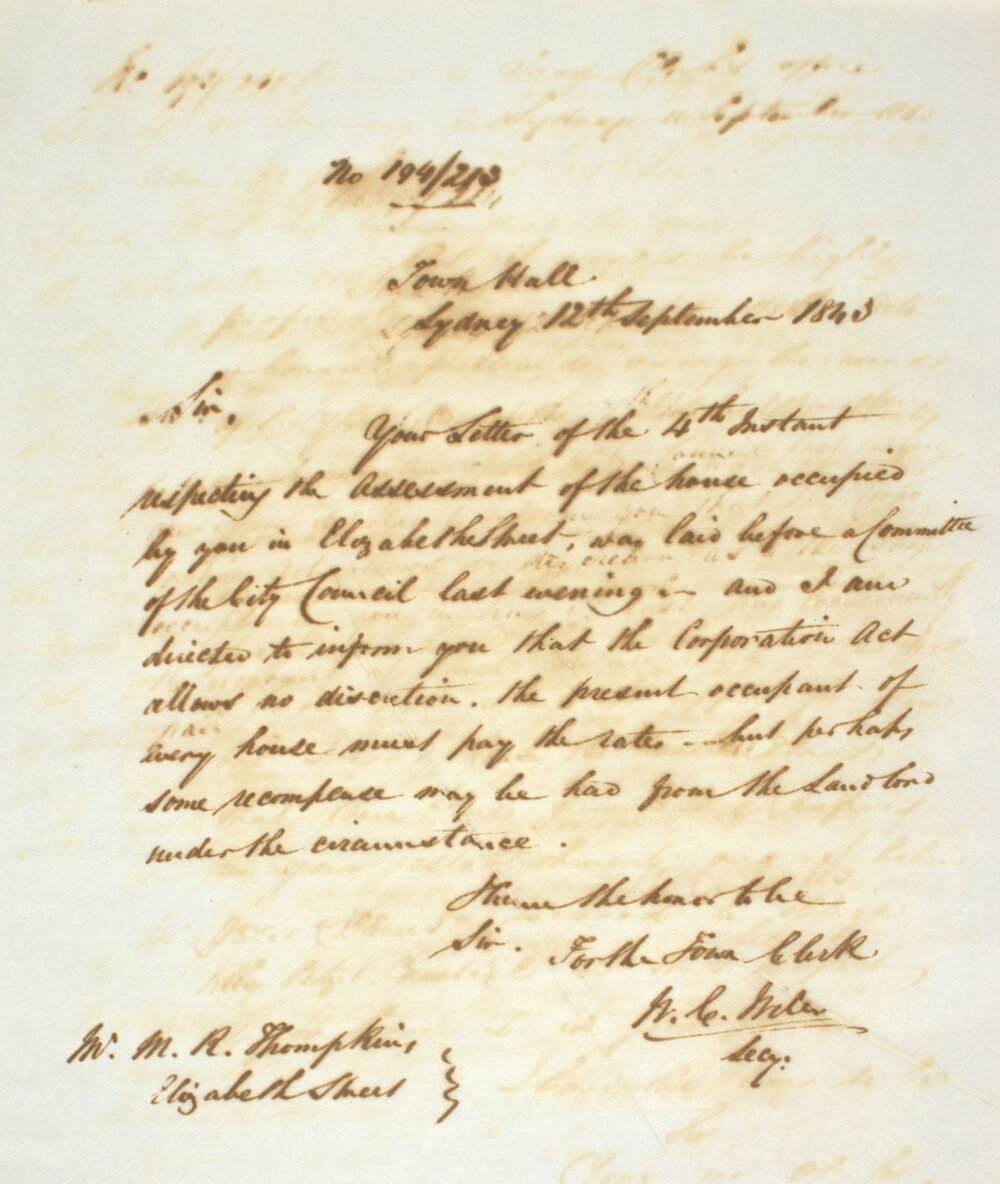 No 194/213
Town Hall
Sydney 12th September 1843
Sir,
Your Letter of the 4th Instant
respecting the Assessment of the house occupied
by you in Elizabeth Street, was laid before a Committee
of the City Council last evening – and I am
directed to inform you that the Corporation Act
allows no discretion. the present occupant of
every house must pay the rates – but perhaps
some recompense may be had from the Landlord
under the circumstance.
I have the honor to be
Sir. For the Town Clerk
W. C.
Secy:
Mr. M. R. Thompkins
Elizabeth Street